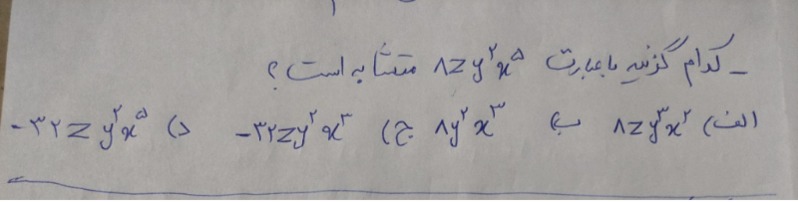 - کدام گزینه با عبارت ۸zy²x⁵ متشابه است؟
الف) ۸zy³x² ب) ۸y²x³ ج) -۳۲zy²x³ د) -۳۲zy²x⁵